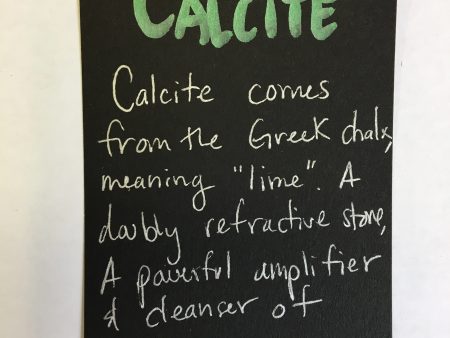 CALCITE
Calcite comes
from the Greek chalx,
meaning "lime". A
doubly refractive stone,
A powerful amplifier
& cleanser of